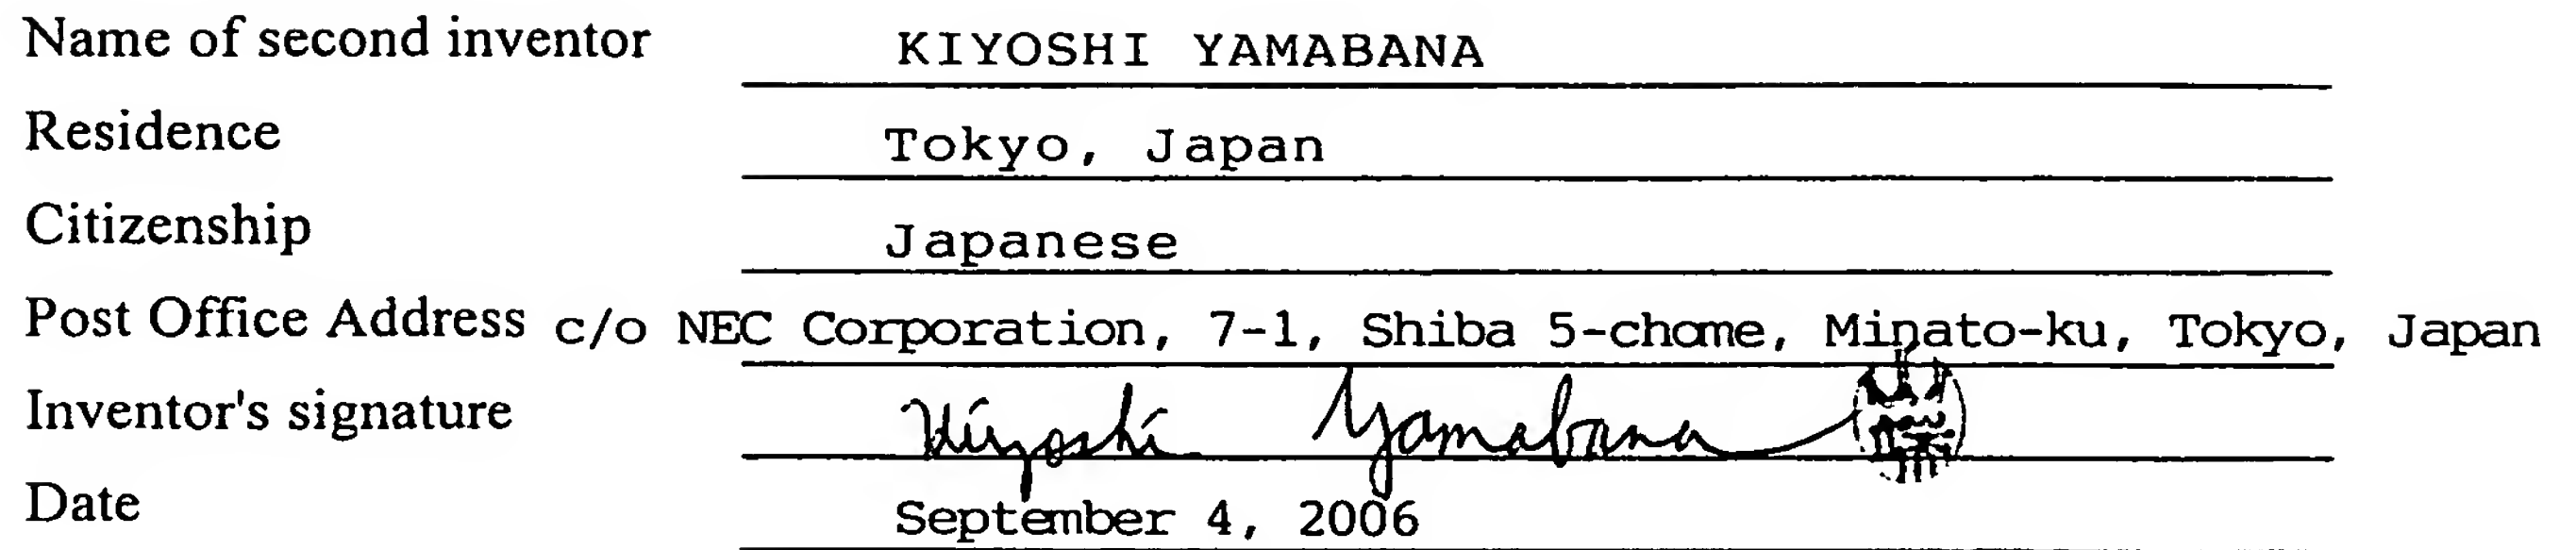 Name of second inventor KIYOSHI YAMABANA
Residence Tokyo, Japan
Citizenship Japanese
Post Office Address c/o NEC Corporation, 7-1, Shiba 5-chome, Minato-ku, Tokyo, Japan
Inventor's signature Kiyoshi Yamabana
Date September 4, 2006